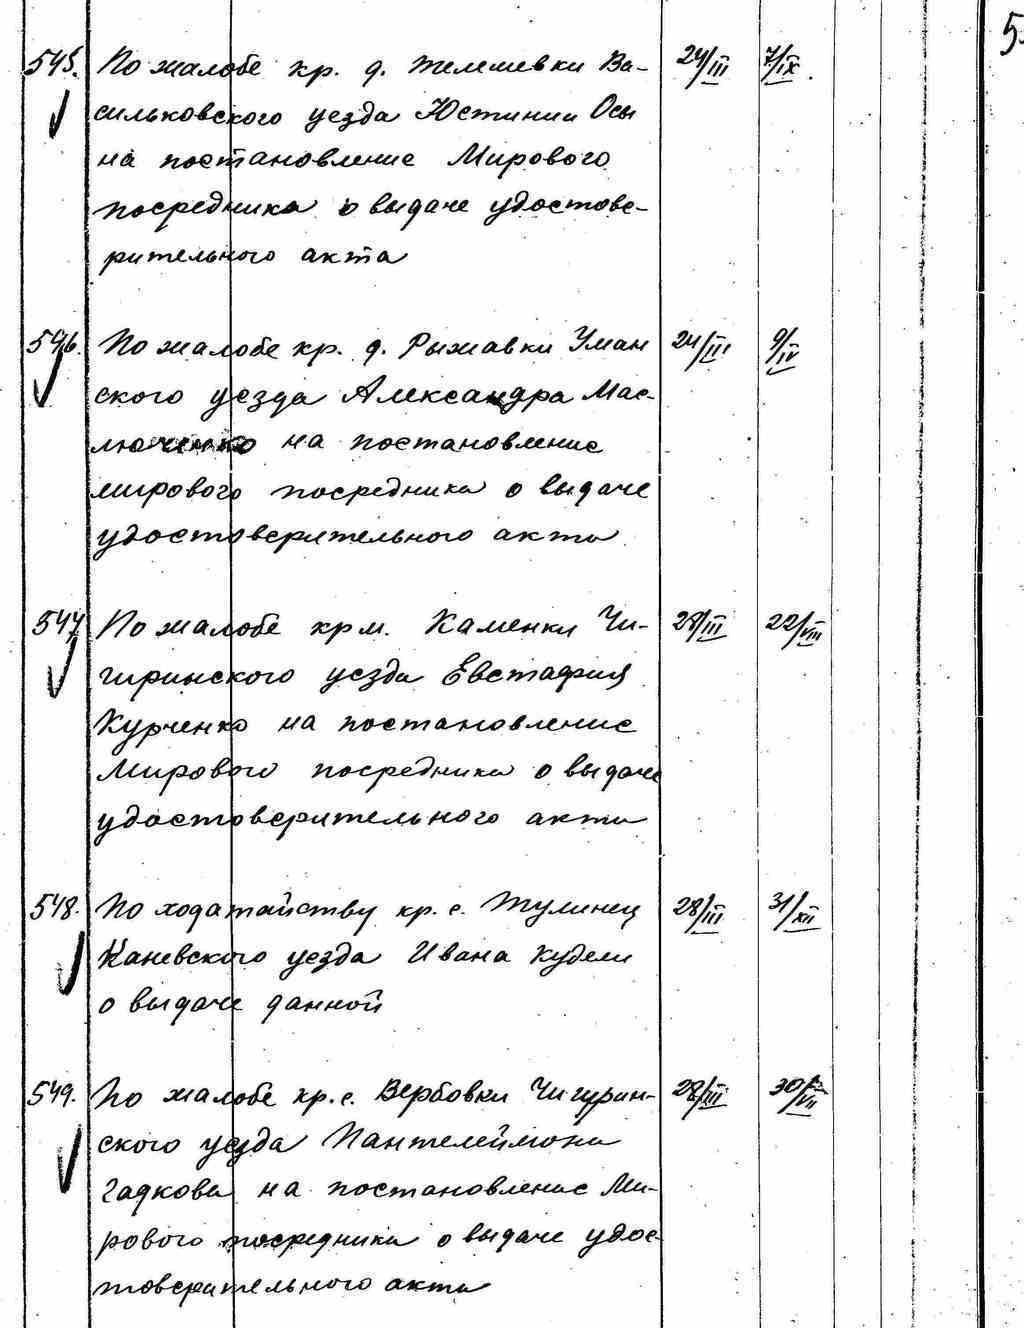 5
545. По жалобе кр. д. Телешевки Ва- 24/III 7/IX.
сильковского уезда Юстинии Осы
на постановление Мирового
посредника о выдаче удостове-
рительного акта
546. По жалобе кр. д. Рыжавки Уман 24/III 9/IV
ского уезда Александра Мас-
люченко на постановление
мирового посредника о выдаче
удостоверительного акта
547. По жалобе кр м. Каменки Чи- 28/III 22/VIII
гиринского уезда Евстафия
Курченко на постановление
Мирового посредника о выдаче
удостоверительного акта
548. По ходатайству кр. с. Тулинец 28/III 31/XII
Каневского уезда Ивана Кудели
о выдаче данной
549. По жалобе кр. с. Вербовки Чигурин- 28/III 30/VII
ского уезда Пантелеймона
Гадкова на постановление Ми-
рового посредника о выдаче удос-
товерительного акта